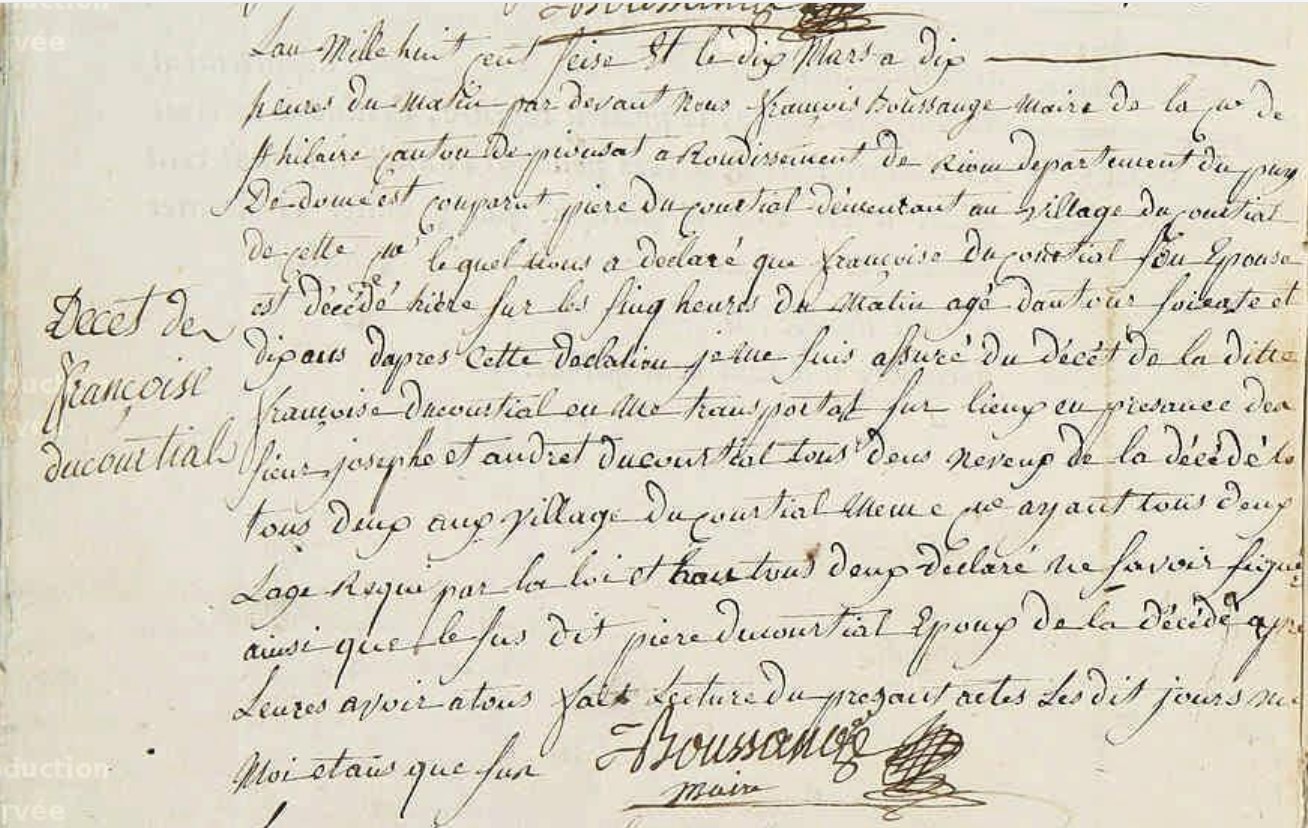 Boussange
Lan Mille huit cent seise Et le dix Mars a dix
heures du Matin par devant Nous françois Boussange Maire de la cne de
st hilaire canton de pionsat a Rondissement de Riom departement du puy
De dome est comparut piere Ducourtial demeurant au village Ducourtial
de cette cne lequel nous a declaré que francoise Ducourtial son Epouse
est décedé hière sur les sinq heures du Matin agé dautour soixante et
dix ans dapres Cette declation je me suis assuré du décét de la ditte
francoise Ducourtial en Me transportat sur lieux en presance des
sieur josephe et andret ducourtial tous deus neveux de la décédé
tous deux aux village Ducourtial Meme cne ayant tous deux
Lage Requi par la loi et tous deux declaré ne savoir signé
ainsi que le sus dit piere ducourtial Epoux de la décédé apre
Leures avoir a tous fait Lecture du presant actes Les dit jours
Moi et ans que sus
Boussange
Maire
Decet de
françoise
ducourtial